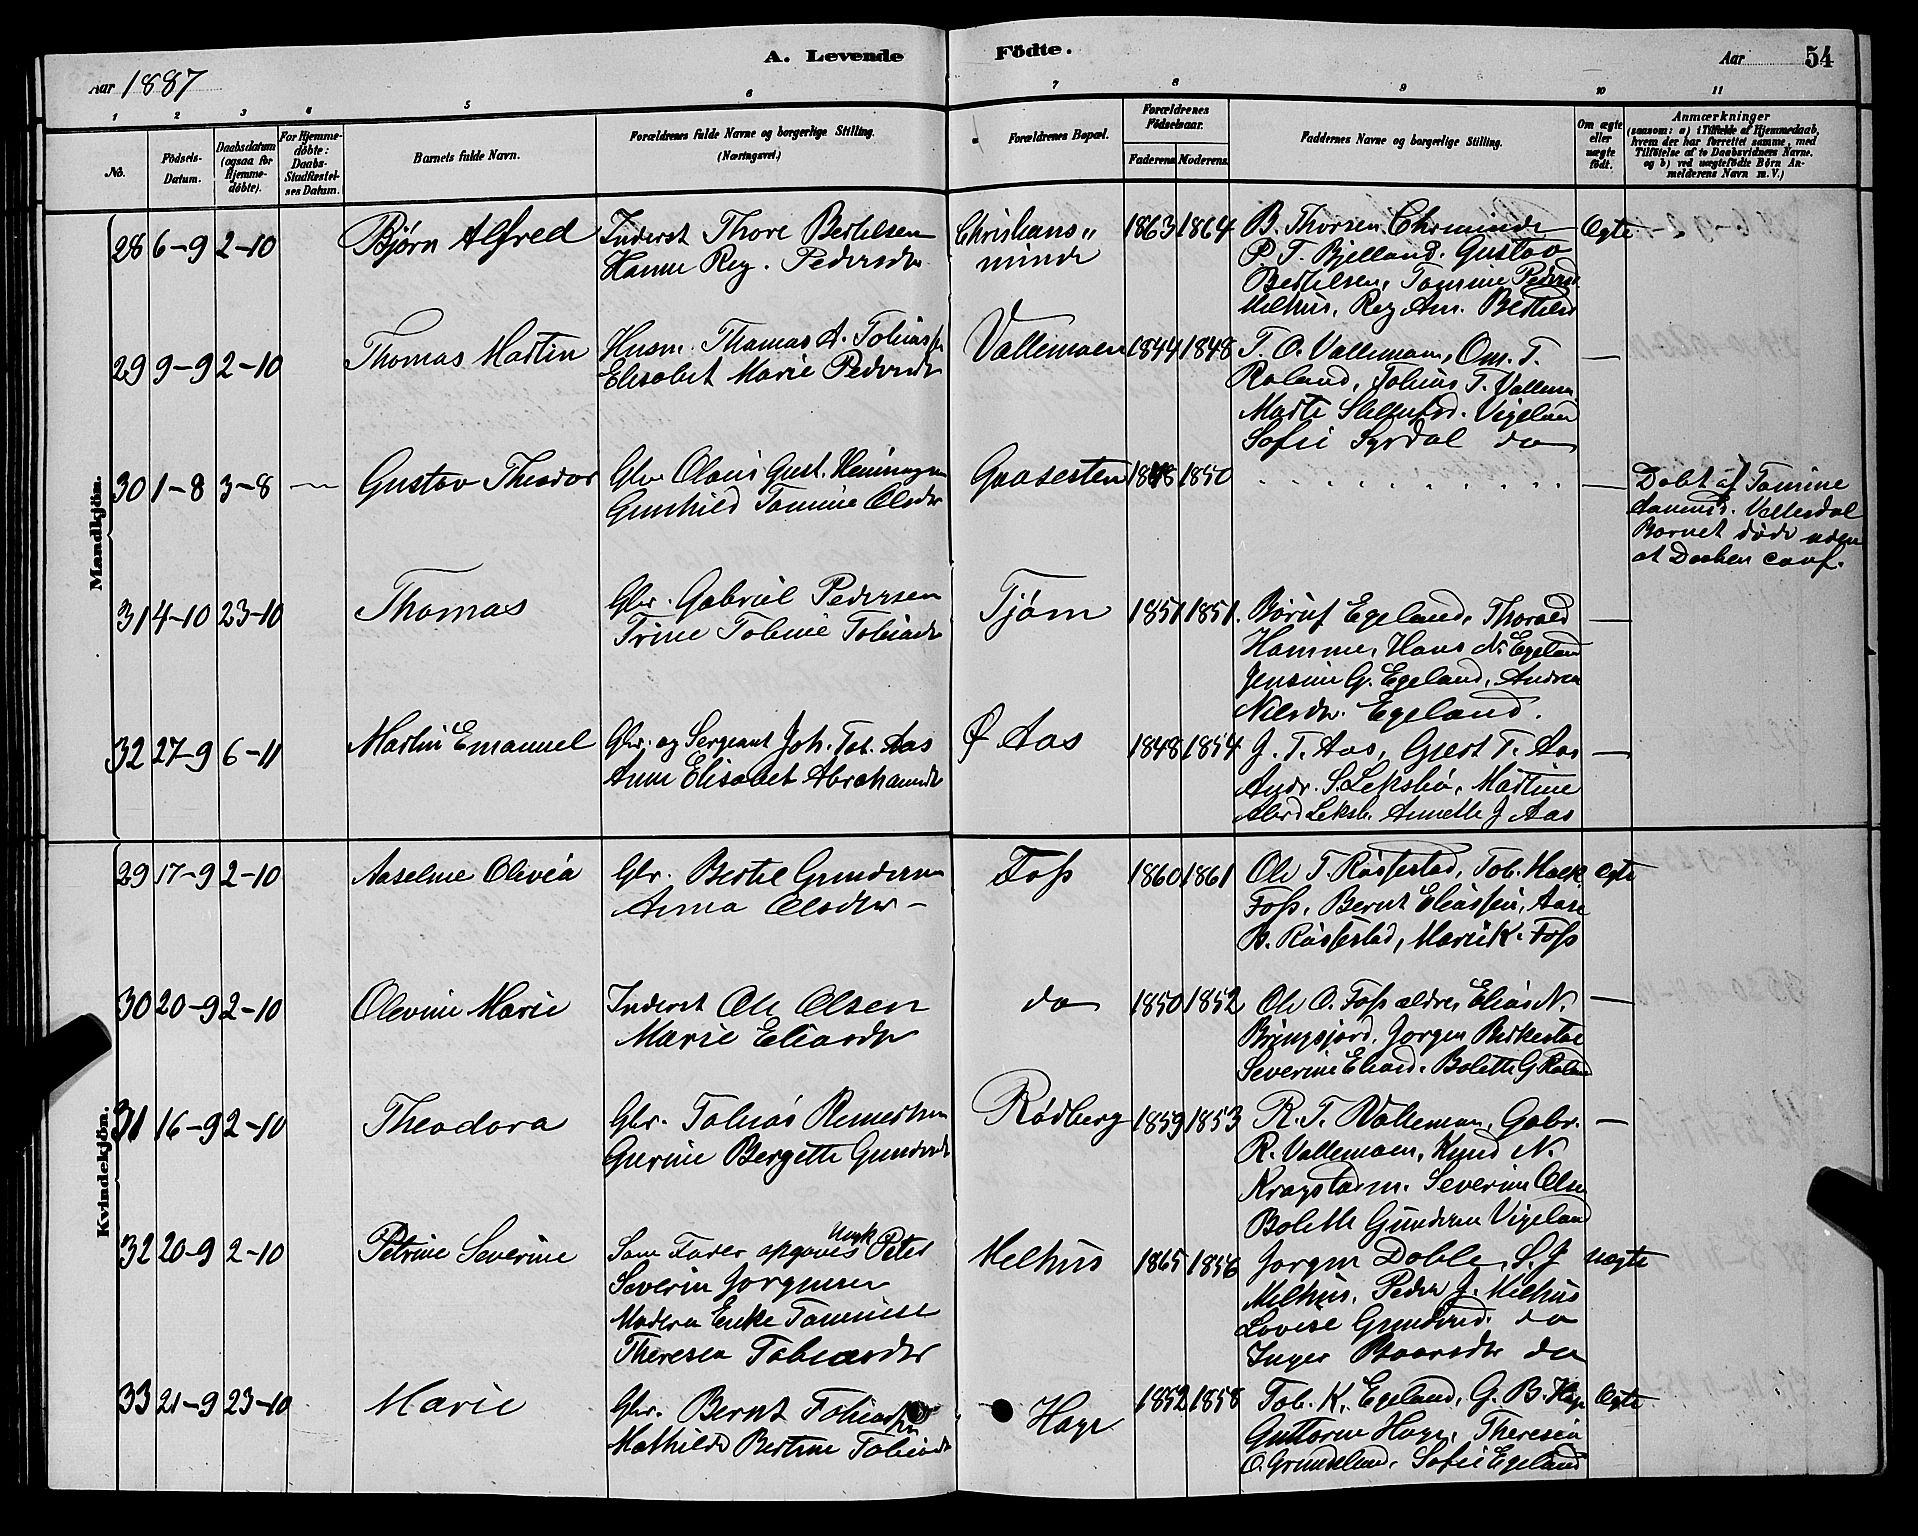 A. Levende Födte.
Aar 1887
Aar 54
1 2 3 4 5 6 7 8 9 10 11
No.
Födsels-Datum.
Daabsdatum (ogsaa for Hjemmedöbte).
For Hjemmedöbte: Daabs-Stadfæstelses Datum.
Barnets fulde Navn.
Forældrenes fulde Navne og borgerlige Stilling. (Næringsvei.)
Forældrenes Bopæl.
Forældrenes Födselsaar.
Faderens Moderens
Faddernes Navne og borgerlige Stilling.
Om ægte eller uægte födt.
Anmærkninger
(saasom: a) i Tilfælde af Hjemmedaab, hvem der har forrettet samme, med Tilföielse af to Daabsvidners Navne, og b) ved uægtefödte Börn Anmelderens Navn m. V.)
Mandkjön.
28 6-9 2-10 Bjørn Alfred
Inderst Thore Bertelsen
Hanne Reg. Pedersdtr
Christians"
minde
1863 1864
B. Thorsen Chrminde
P. T. Bjelland. Gustav
Bertelsen, Tomine Peders
Melhus, Reg An. Bertels
Egte
29 9-9 2-10 Thomas Martin
Husm. Thomas A. Tobiass
Elisabet Marie Pedersdtr
Vallemoen
1844 1848
T. O. Vallemoen, Om. T.
Roland, Tobias T. Vallem
Marte Vigeland
Sofie Syrdal do
—
30 1-8 3-8 — Gustav Theodor
Gbr Olaus Gust. Henningsen
Gunhild Tomine Olsdtr
Gaasesten
1848 1850
—
Døbt af Tomine
Aamunds. Vollesdal
Barnet døde uden
at Daaben conf.
31 4-10 23-10 Thomas
Gbr. Gabriel Pedersen
Trine Toline Tobiasdtr
Tjøm
1851 1851
Børuf Egeland, Thorald
Homme, Hans N. Egeland
Jensine G. Egeland, Andrea
Nilsdtr. Egeland.
—
32 27-9 6-11 Martin Emanuel
Gbr. og Sergeant Joh. Tob. Aas
Anne Elisabet Abrahamsdtr
Ø Aas
1848 1854
J. T. Aas, Gjert T. Aas
Andr. S. Leksbø, Martine
Abrd Leksb. Annette J Aas
—
Kvindekjön.
29 17-9 2-10 Aaselene Olivia
Gbr. Bertel Gundersen
Anna Olsdtr -
Foss
1860 1861
Ole T. Røssestad, Tob.
Foss, Bernt Eliassen, Aase
B. Røssestad, Marie K. Foss
Egte
30 20-9 2-10 Olevine Marie
Inderst Ole Olsen
Marie Eliasdtr
do
1850 1852
Ole O. Foss ældre, Elias N.
Brimsjord, Jørgen Birkestøl
Severine Eliasd. Bolette G. Roland
—
31 16-9 2-10 Theodora
Gbr. Tobias Reinertsen
Gurine Bergette Gundersdtr
Rødberg
1859 1853
R. T. Vollemoen, Gabr.
R. Vallemoen, Knud N.
Severine Olsen
Bolette Gundersen Vigeland
—
32 20-9 2-10 Petrine Severine
Som Fader opgaves Ungk Peter
Severin Jørgensen
Moderen Enke Tomine
Theresia Tobiasdtr
Melhus
1865 1856
Jørgen Doble, S. J
Melhus, Peder J. Melhus
Lovise Gundersd. do
Inger Baardsdtr do
Uægte
33 21-9 23-10 Marie
Gbr. Bernt Tobiassen
Mathilde Bertine Tobiasdtr
Haye
1852 1858
Tob. K. Egeland, G. B. Haye
Guttorm Haye, Theresia
O. Grundeland, Sofie Egeland
Egte